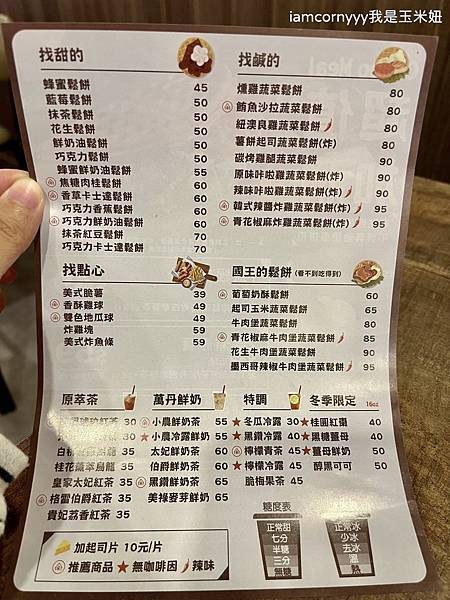 iamcornyyy我是玉米妞
找甜的
蜂蜜鬆餅 45
藍莓鬆餅 50
抹茶鬆餅 50
花生鬆餅 50
鮮奶油鬆餅 50
巧克力鬆餅 50
蜂蜜鮮奶油鬆餅 55
焦糖肉桂鬆餅 60
香草卡士達鬆餅 60
巧克力香蕉鬆餅 60
巧克力鮮奶油鬆餅 60
抹茶紅豆鬆餅 70
巧克力卡士達鬆餅 70
找鹹的
燻雞蔬菜鬆餅 80
鮪魚沙拉蔬菜鬆餅 80
紐澳良雞蔬菜鬆餅 80
薯餅起司蔬菜鬆餅(炸) 80
碳烤雞腿蔬菜鬆餅 90
原味咔啦雞蔬菜鬆餅(炸) 90
辣味咔啦雞蔬菜鬆餅(炸) 90
韓式辣醬炸雞蔬菜鬆餅(炸) 95
青花椒麻炸雞蔬菜鬆餅(炸) 95
找點心
美式脆薯 39
香酥雞球 49
雙色地瓜球 49
炸雞塊 59
美式炸魚條 59
國王的鬆餅 (看不到吃得到)
葡萄奶酥鬆餅 60
起司玉米蔬菜鬆餅 65
牛肉堡蔬菜鬆餅 80
青花椒麻牛肉堡蔬菜鬆餅 85
花生牛肉堡蔬菜鬆餅 90
墨西哥辣椒牛肉堡蔬菜鬆餅 95
原萃茶
琥珀紅茶 30
30
35
桂花蘋萃烏龍 35
皇家太妃紅茶 35
格雷伯爵紅茶 35
貴妃荔香紅茶 35
萬丹鮮奶
小農鮮奶茶 55
★小農冷露鮮奶 55
太妃鮮奶茶 60
伯爵鮮奶茶 60
黑鑽鮮奶茶 65
美祿麥芽鮮奶 65
特調
★冬瓜冷露 30
★黑鑽冷露 40
檸檬青茶 45
★檸檬冷露 45
脆梅果茶 45
冬季限定 16oz
★桂圓紅棗 40
★黑糖薑母 40
★薑母鮮奶 50
醇黑可可 50
加起司片 10元/片
推薦商品 ★無咖啡因 辣味
糖度表
正常甜
七分
半糖
三分
無糖
正常冰
少冰
去冰
溫
熱